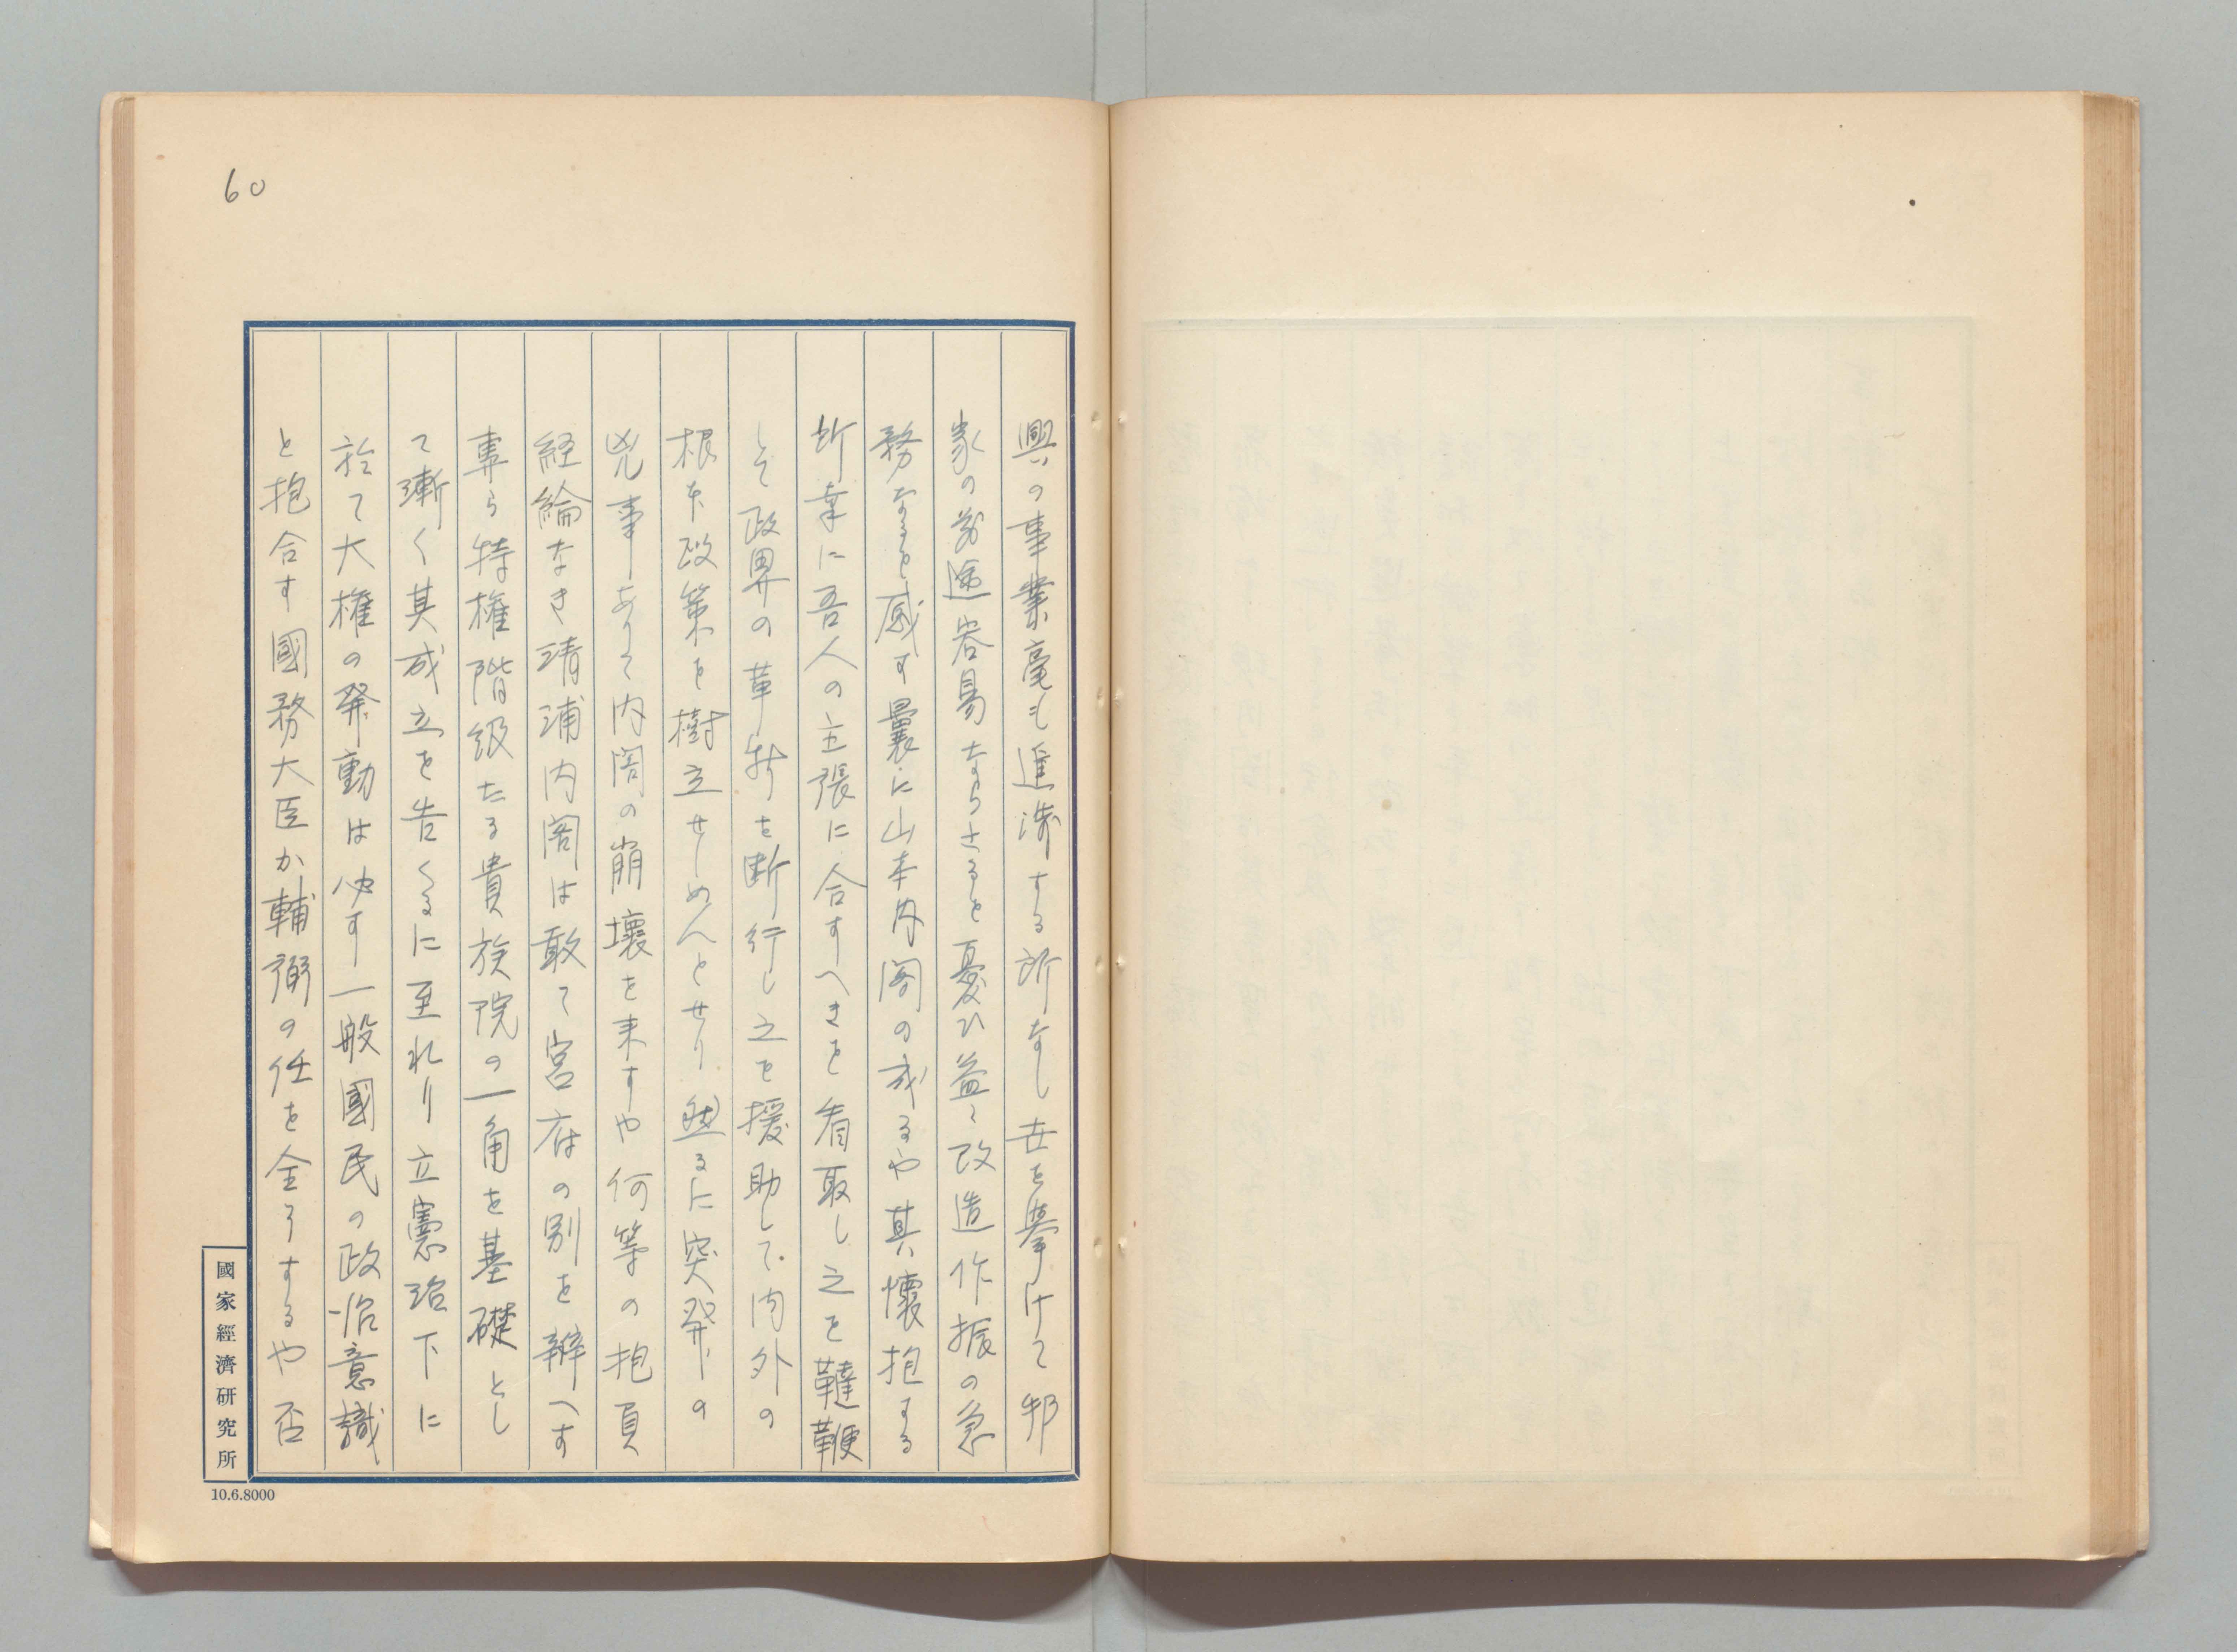 60
興の事業毫も進渉する所なし世を挙けて邦
家の前途容易ならさるを憂ひ益々改造作振の急
務なるを感す曩に山本内閣の成るや其懐抱する
所幸に吾人の主張に合すへきを看取し之を鞭撻
して政界の革新を断行し之を援助して内外の
根本政策を樹立せしめんとせり然るに突発の
兇事ありて内閣の崩壊を来すや何等の抱負
経綸なき清浦内閣は敢て宮府の別を辨へす
専ら特権階級たる貴族院の一角を基礎とし
て漸く其成立を告くるに至れり立憲治下に
於て大権の発動は必す一般國民の政治意識
と抱合す國務大臣か輔弼の任を全うするや否
國家經濟研究所
10.6.8000